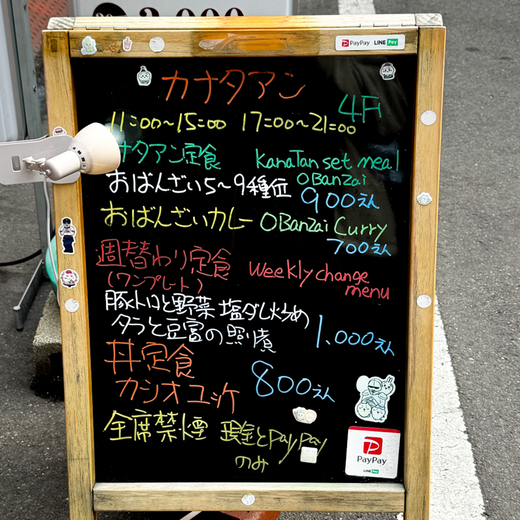 2,000
PayPay LINE Pay
カナタアン
4F
11:00~15:00 17:00~21:00
ナタアン定食 kanaTan set meal
おばんざい5~9種位 OBanzai
900えん
おばんざいカレー OBanzai Curry
700えん
週替わり定食 weekly change
(ワンプレート) menu
豚トロと野菜 塩ダレ炒め
タラと豆富の照煮 1,000えん
丼定食
カツオユッケ 800えん
全席禁煙 現金とpaypay
のみ
PayPay
LINE Pay